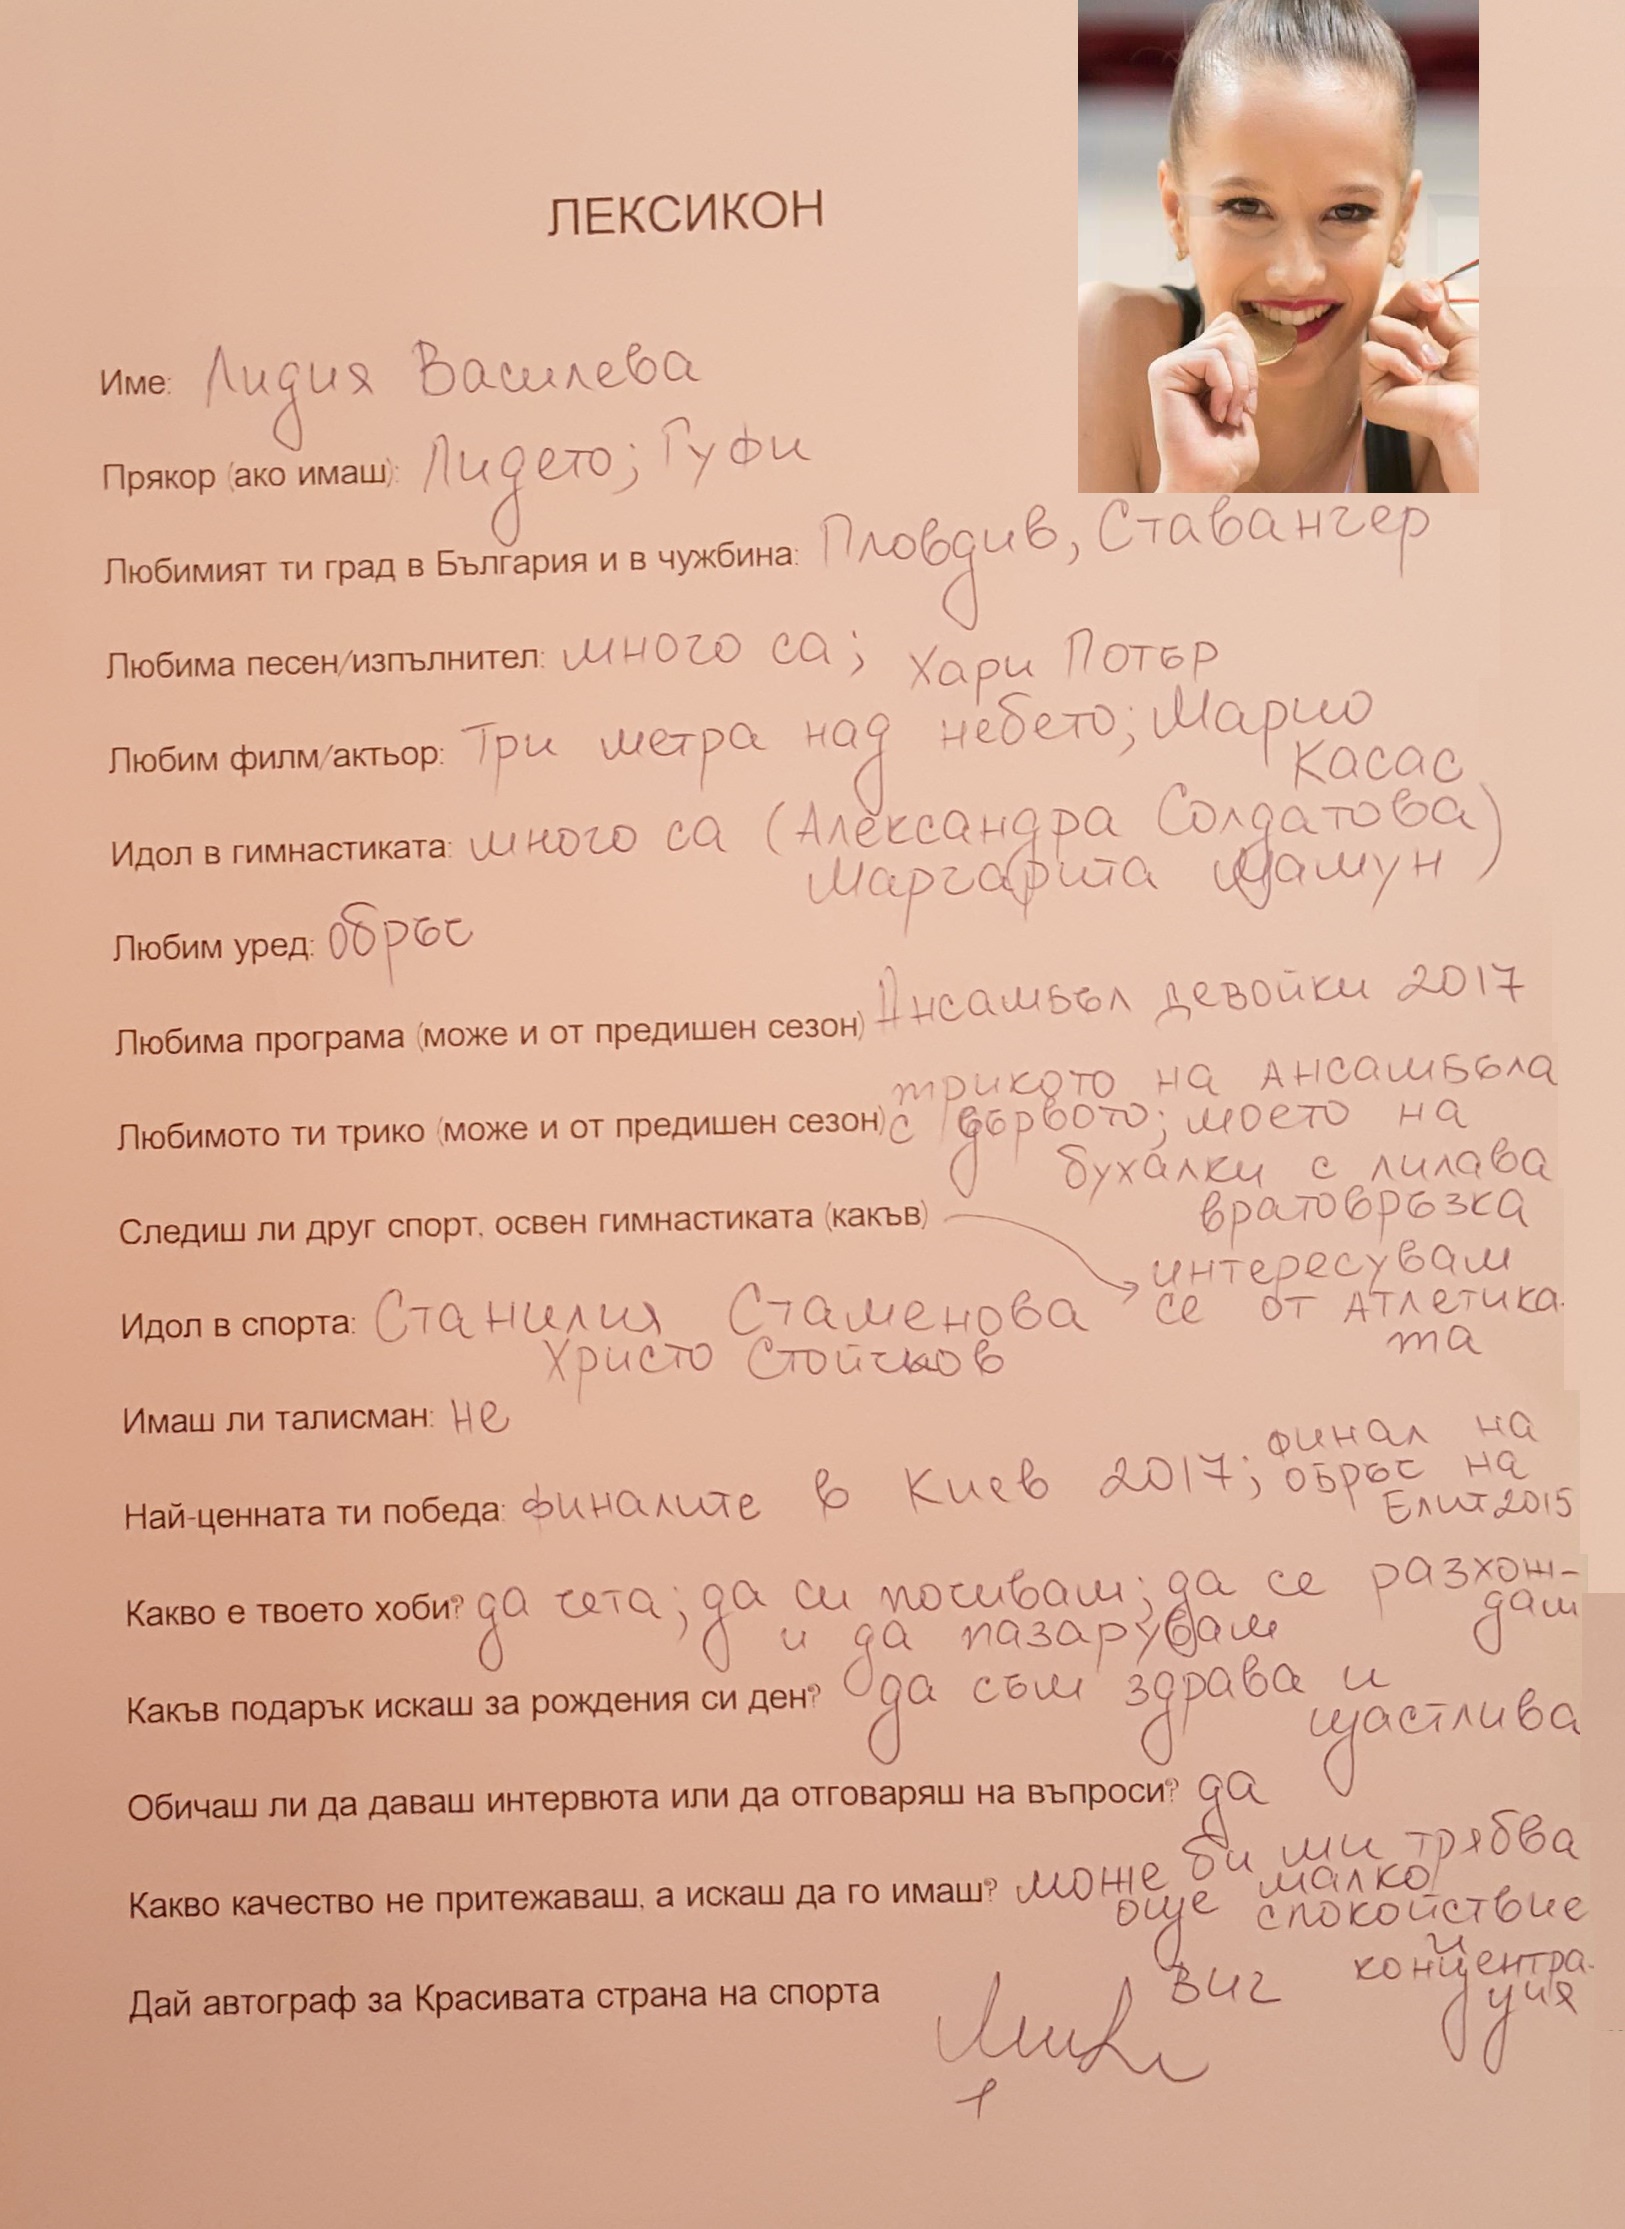 ЛЕКСИКОН
Име: Лидия Василева
Прякор (ако имаш): Лидето; Гуфи
Любимият ти град в България и в чужбина: Пловдив, Ставангер
Любима песен/изпълнител: много са; Хари Потър
Любим филм/актьор: Три метра над небето; Марио
Касас
Идол в гимнастиката: много са (Александра Солдатова)
Маргарита Мамун
Любим уред: обръч
Любима програма (може и от предишен сезон) Ансамбъл девойки 2017
трикото на Ансамбъла
Любимото ти трико (може и от предишен сезон) с дървото; моето на
бухалки с лилава
вратовръзка
Следиш ли друг спорт, освен гимнастиката (какъв)
интересувам
се от Атлетика-
та
Идол в спорта: Станилия Стаменова
Христо Стоичков
Имаш ли талисман: не
Най-ценната ти победа: финалите в Киев 2017; финал на
обръч на
Елит 2015
Какво е твоето хоби? да чета; да си почивам; да се разхож-
дам
и да пазарувам
Какъв подарък искаш за рождения си ден? да съм здрава и
щастлива
Обичаш ли да даваш интервюта или да отговаряш на въпроси? да
Какво качество не притежаваш, а искаш да го имаш? може би ми трябва
още малко
спокойствие
и
концентра-
ция
Дай автограф за Красивата страна на спорта